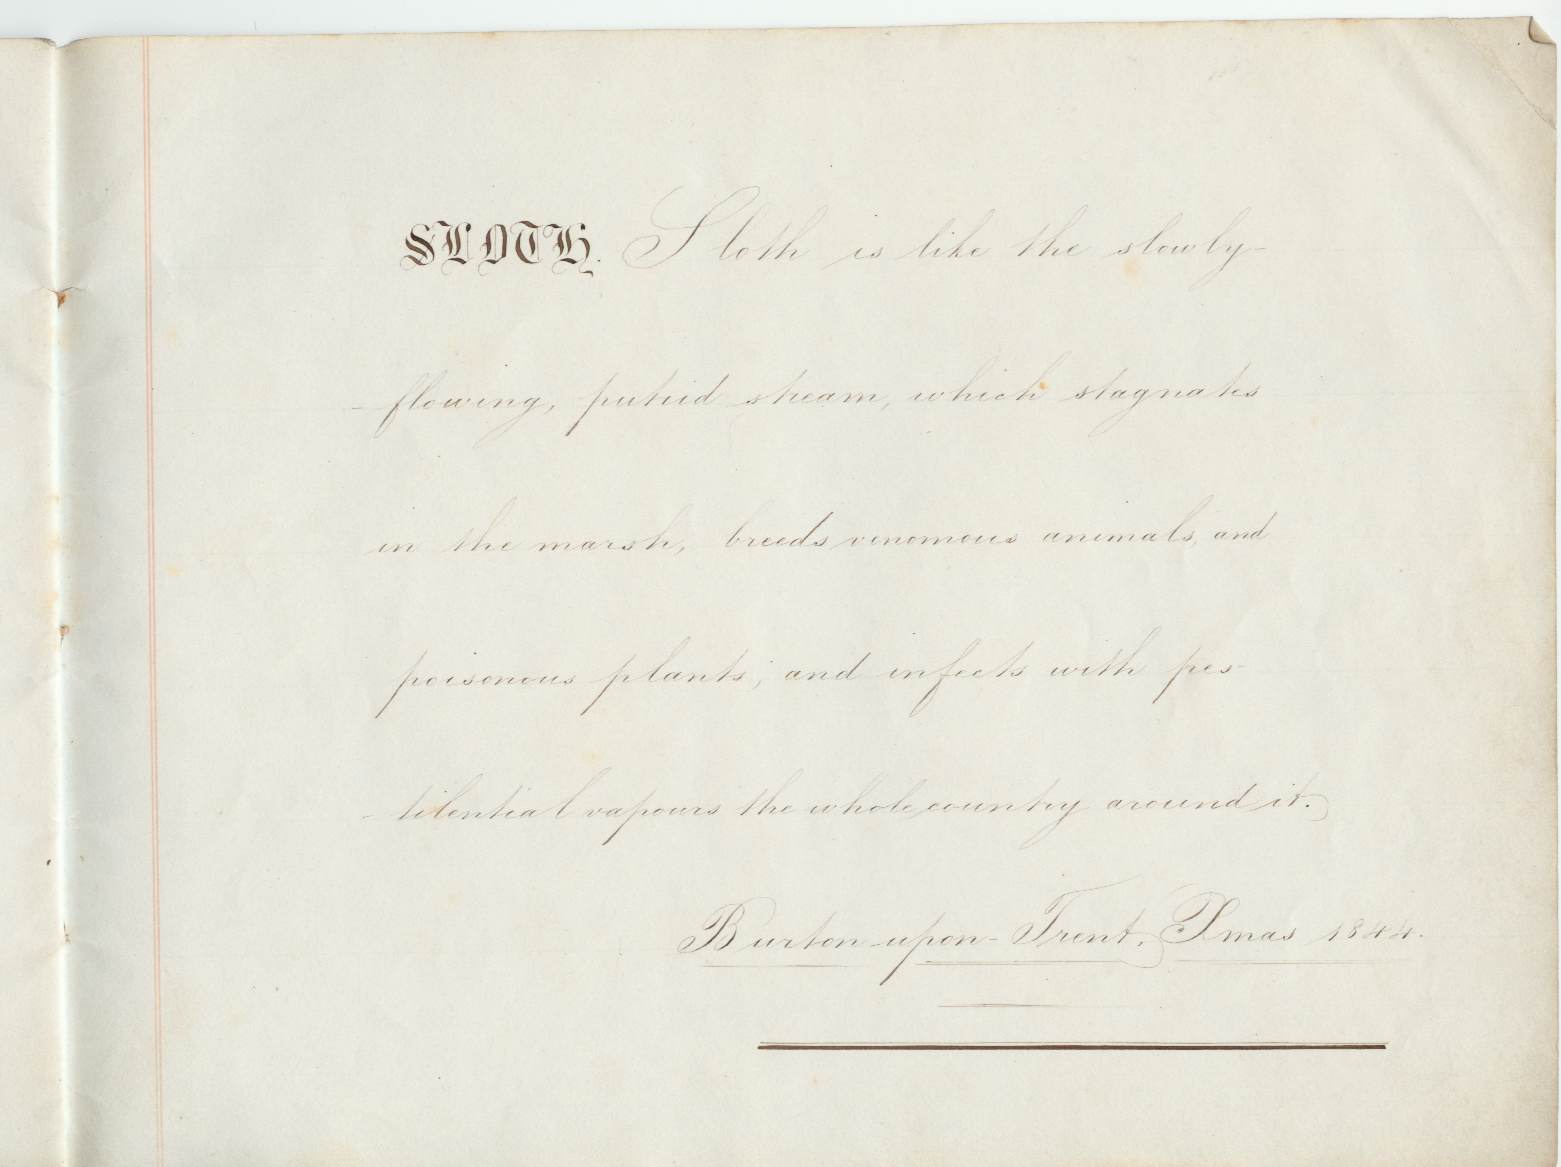 SLOTH. Sloth is like the slowly-
-flowing, putrid stream, which stagnates
in the marsh, breeds venomous animals, and
poisonous plants; and infects with pes-
-tilential vapours the whole country around it.
Burton-upon-Trent, Xmas 1844.